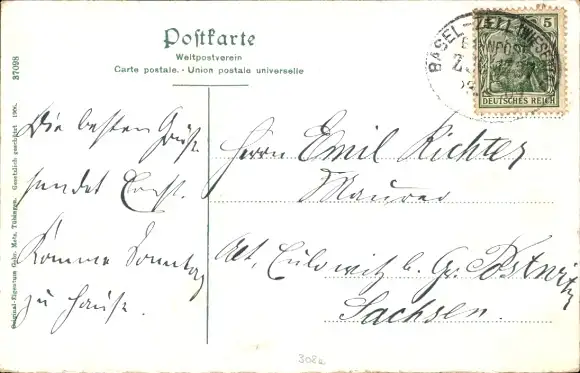 Postkarte
Weltpostverein
Carte postale. - Union postale universelle
37098
Original-Eigentum Gebr. Metz, Tübingen. Gesetzlich geschützt 1906.
5
DEUTSCHES REICH
BASEL-ZELL (WIESENTAL)
BAHNPOST
Die besten Grüße
sendet Ernst.
Komme Sonntag
zu Hause.
Herrn Emil Richter
Maurer
Alt. Culowitz b. Gr. Postwitz
Sachsen.
308a